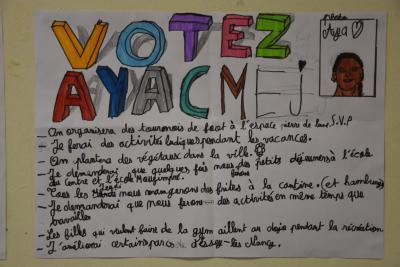 VOTEZ
photo
Aya
AYA CMEJ
- On organisera des tournois de foot à l'espace pierre de lune S.V.P
- Je ferai des activités ludiques pendant les vacances.
- On plantera des végétaux dans la ville.
- Je demanderai que quelques fois nous des petits déjeuners à l'école
du centre et l'école
- Tous les nous mangerons des frites à la cantine. (et hamburger)
- Je demanderai que nous ferons des activités en même temps que
travailler
- Les filles qui veulent faire de la gym aillent au dojo pendant la récréation
- J'améliorai certains parcs d'Essey-lès-Nancy.